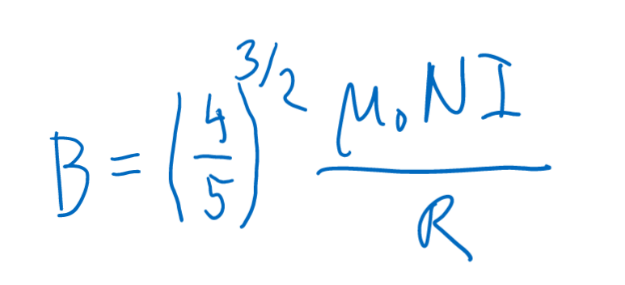 B = (4/5)^3/2 μ₀NI/R